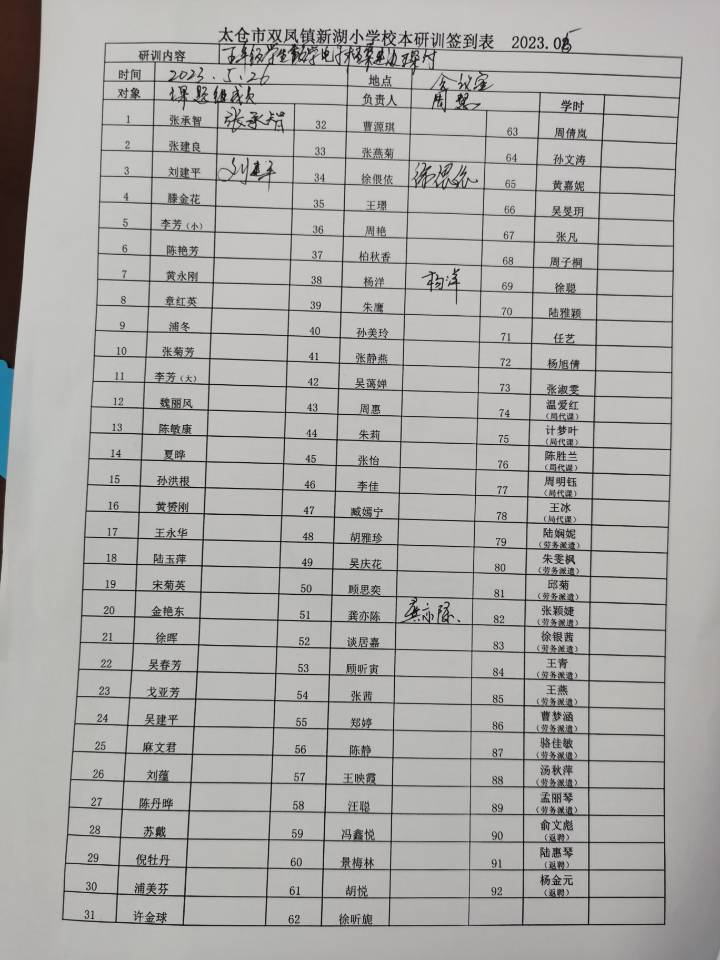 太仓市双凤镇新湖小学校本研训签到表 2023.05
研训内容 五年级学生数学电子档案建立探讨
时间 2023.5.26 地点 会议室
对象 课题组成员 负责人 周慧 学时
1 张承智 张承智 32 曹源琪 63 周倩岚
2 张建良 33 张燕菊 64 孙文涛
3 刘建平 刘建平 34 徐偎依 徐偎依 65 黄嘉妮
4 滕金花 35 王璟 66 吴旻玥
5 李芳（小） 36 周艳 67 张凡
6 陈艳芳 37 柏秋香 68 周子桐
7 黄永刚 38 杨洋 杨洋 69 徐聪
8 章红英 39 朱鹰 70 陆雅颖
9 浦冬 40 孙美玲 71 任艺
10 张菊芳 41 张静燕 72 杨旭倩
11 李芳（大） 42 吴蔼婵 73 张淑雯
12 魏丽凤 43 周惠 74 温爱红（局代课）
13 陈敏康 44 朱莉 75 计梦叶（局代课）
14 夏晔 45 张怡 76 陈胜兰（局代课）
15 孙洪根 46 李佳 77 周明钰（局代课）
16 黄赟刚 47 臧嫣宁 78 王冰（局代课）
17 王永华 48 胡雅珍 79 陆娴妮（劳务派遣）
18 陆玉萍 49 吴庆花 80 朱雯枫（劳务派遣）
19 宋菊英 50 顾思奕 81 邱菊（劳务派遣）
20 金艳东 51 龚亦陈 龚亦陈 82 张颖婕（劳务派遣）
21 徐晖 52 谈居嘉 83 徐银茜（劳务派遣）
22 吴春芳 53 顾昕寅 84 王青（劳务派遣）
23 戈亚芳 54 张茜 85 王燕（劳务派遣）
24 吴建平 55 郑婷 86 曹梦涵（劳务派遣）
25 麻文君 56 陈静 87 骆佳敏（劳务派遣）
26 刘蕴 57 王映霞 88 汤秋萍（劳务派遣）
27 陈丹晔 58 汪聪 89 孟丽琴（劳务派遣）
28 苏戴 59 冯鑫悦 90 俞文彪（返聘）
29 倪牡丹 60 景梅林 91 陆惠琴（返聘）
30 浦美芬 61 胡悦 92 杨金元（返聘）
31 许金球 62 徐昕旎